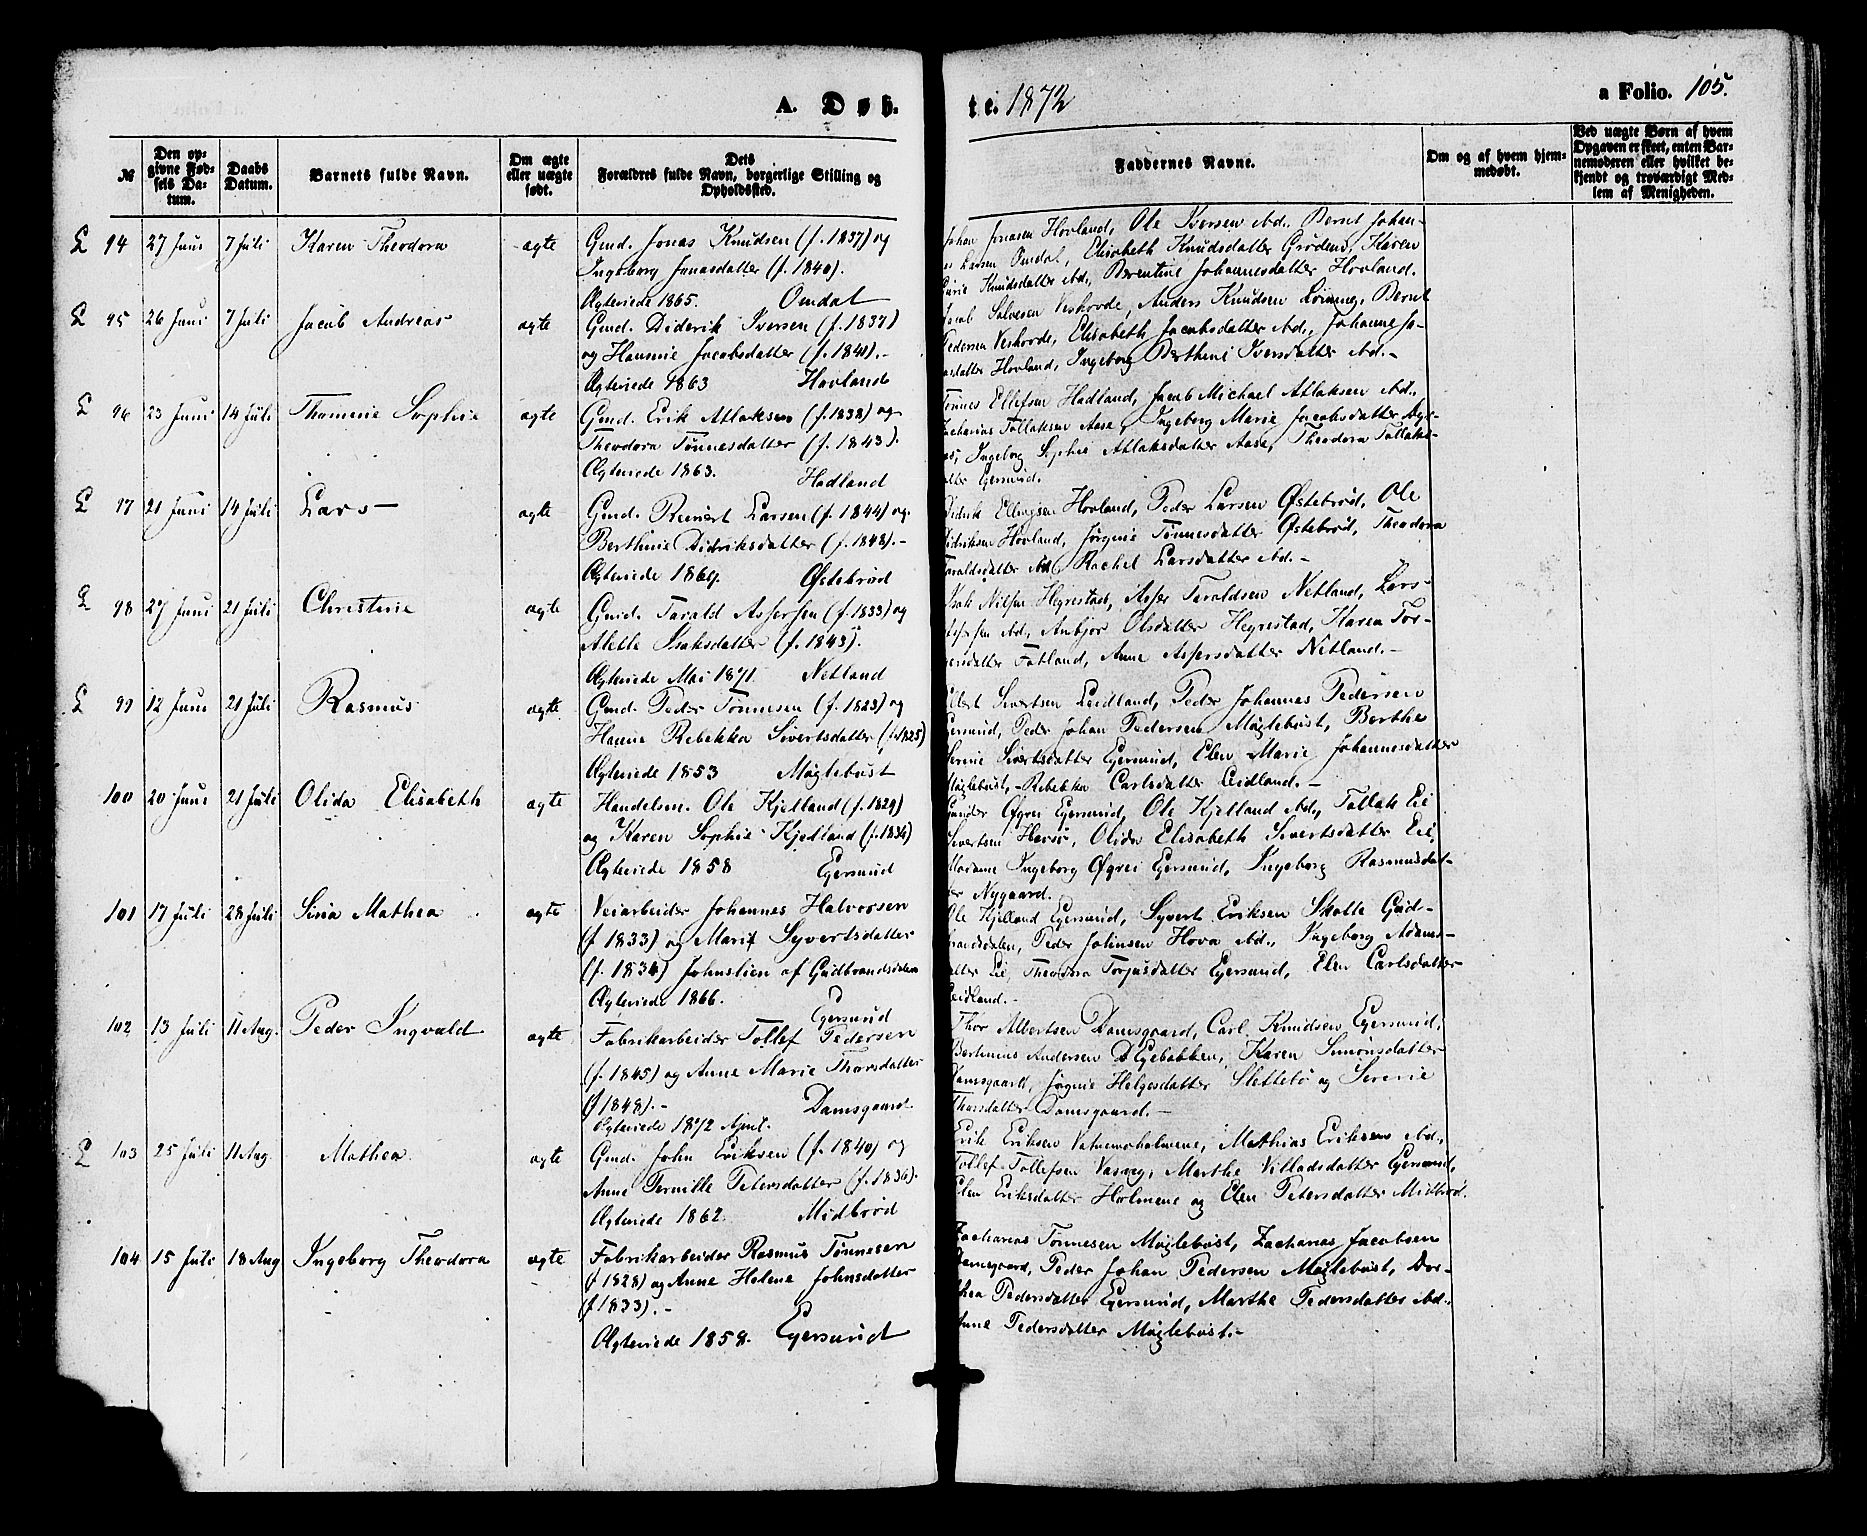 A. Døb.
te. 1872
a Folio. 105.
№
Den opgivne Fødsels Datum.
Daabs Datum.
Barnets fulde Navn.
Om ægte eller uægte født.
Dets Forældres fulde Navn, borgerlige Stilling og Opholdssted.
Faddernes Navne.
Om og af hvem hjemmedøbt.
Ved uægte Børn af hvem Opgaven er skeet, enten Barnemoderen eller hvilket bekjendt og troværdigt Medlem af Menigheden.
£ 94 27 Juni 7 Juli Karen Theodora ægte Gmd. Jonas Knudsen (f. 1837) og
Ingeborg Jonasdatter (f. 1840).
Ægteviede 1865. Omdal
Johan Jonasen Hovland, Ole Iversen ibd., Bernt Johan-
es Larsen Omdal, Elisabeth Knudsdatter Grødem, Karen
Knudsdatter ibd., Berentine Johannesdatter Hovland.
£ 95 26 Juni 7 Juli Jacob Andreas ægte Gmd. Diderik Iversen (f. 1837)
og Hanne Jacobsdatter (f. 1840).-
Ægteviede 1863 Hovland
Jacob Salvesen Veshovde, Anders Knudsen Lomeng, Bernt
Pedersen Veshovde, Elisabeth Jacobsdatter ibd., Johanne Jo-
asdatter Hovland, Ingeborg Berthine Iversdatter ibd.-
£ 96 23 Juni 14 Juli Thomine Sophie ægte Gmd. Erik Atlaksen (f. 1838) og
Theodora Tønnesdatter (f. 1843).
Ægteviede 1863. Hadland
Tønnes Ellefsen Hadland, Jacob Michael Atlaksen ibd.,
Zacharias Tollaksen Aase, Ingeborg Marie Jacobsdatter
Ingeborg Sophie Atlaksdatter Aase, Theodora Tollaks-
atter Egersund.
£ 97 21 Juni 14 Juli Lars - ægte Gmd. Reinert Larsen (f. 1844) og
Berthine Didriksdatter (f. 1848).-
Ægteviede 1869. Østebrød
Didrik Ellingsen Hovland, Peder Larsen Østebrød, Ole
Didriksen Hovland, Jørgine Tønnesdatter Østebrød, Theodora
Taraldsdatter ibd., Rachel Larsdatter ibd.-
£ 98 27 Juni 21 Juli Christine ægte Gmd. Tarald Assersen (f. 1833) og
Alette Isaksdatter (f. 1843).
Ægteviede Mai 1871. Netland
Isak Nilsen Hegrestad, Asser Taraldsen Netland, Lars
ibd., Anbjør Olsdatter Hegrestad, Karen Tor-
gersdatter Fotland, Anne Assersdatter Netland.-
£ 99 12 Juni 21 Juli Rasmus ægte Gmd. Peder Tønnesen (f. 1823) og
Hanne Rebekka Sivertsdatter (f. 1825)
Ægteviede 1853 Møglebust
Ellert Sivertsen Leidland, Peder Johannes Pedersen
Egersund, Peder Johan Pedersen Møglebust, Berthe
Serine Sivertsdatter Egersund, Elen Marie Johannesdatter
Møglebust, Rebekka Carlsdatter Leidland.-
100 20 Juni 21 Juli Olida Elisabeth ægte Handelsm. Ole Kjelland (f. 1829)
og Karen Sophie Kjelland (f. 1834)
Ægteviede 1858 Egersund
Gunder Øgrei Egersund, Ole Kjelland ibd., Tollak Eie,
Sivertsen Havsø, Olida Elisabeth Sivertsdatter Eie,
Madame Ingeborg Øgrei Egersund, Ingeborg Rasmusdat-
ter Nygaard.
101 17 Juli 28 Juli Sina Mathea ægte Veiarbeider Johannes Halvorsen
(f 1833) og Marit Syvertsdatter
(f. 1834) Johnslien af Gudbrandsdalen
Ægteviede 1866. Egersund
Ole Kjelland Egersund, Syvert Eriksen Skotte Gud-
brandsdalen, Peder Johnsen Hova ibd., Ingeborg Adams-
datter Eie, Theodora Torjusdatter Egersund, Elen Carlsdatter
Leidland.-
102 13 Juli 11 Aug. Peder Ingvald ægte Fabrikarbeider Tollef Pedersen
(f. 1845) og Anne Marie Thorsdatter
(f 1848).- Damsgaard
Ægteviede 1872 April.
Thor Albertsen Damsgaard, Carl Knudsen Egersund,
Bertinius Andersen Degebakken, Karen Simonsdatter
Damsgaard, Jørgine Helgesdatter Slettebø og Serine
Thorsdatter Damsgaard.-
£ 103 25 Juli 11 Aug. Mathea ægte Gmd. John Eriksen (f. 1840) og
Anne Pernille Petersdatter (f. 1836).
Ægteviede 1862. Midbrød
Erik Eriksen Vatnemoholmene, Mathias Eriksen ibd.,
Tollef Tollefsen Vasveg, Marthe Villadsdatter Egersund,
Elen Eriksdatter Holmene og Elen Petersdatter Midbrød.
104 15 Juli 18 Aug Ingeborg Theodora ægte Fabrikarbeider Rasmus Tønnesen
(f 1828) og Anne Helene Johnsdatter
(f 1833).-
Ægteviede 1858. Egersund
Zacharias Tønnesen Møglebust, Zacharias Jacobsen
Damsgaard, Peder Johan Pedersen Møglebust, Dor-
thea Pedersdatter Egersund, Marthe Pedersdatter ibd.,
Anne Pedersdatter Møglebust.-